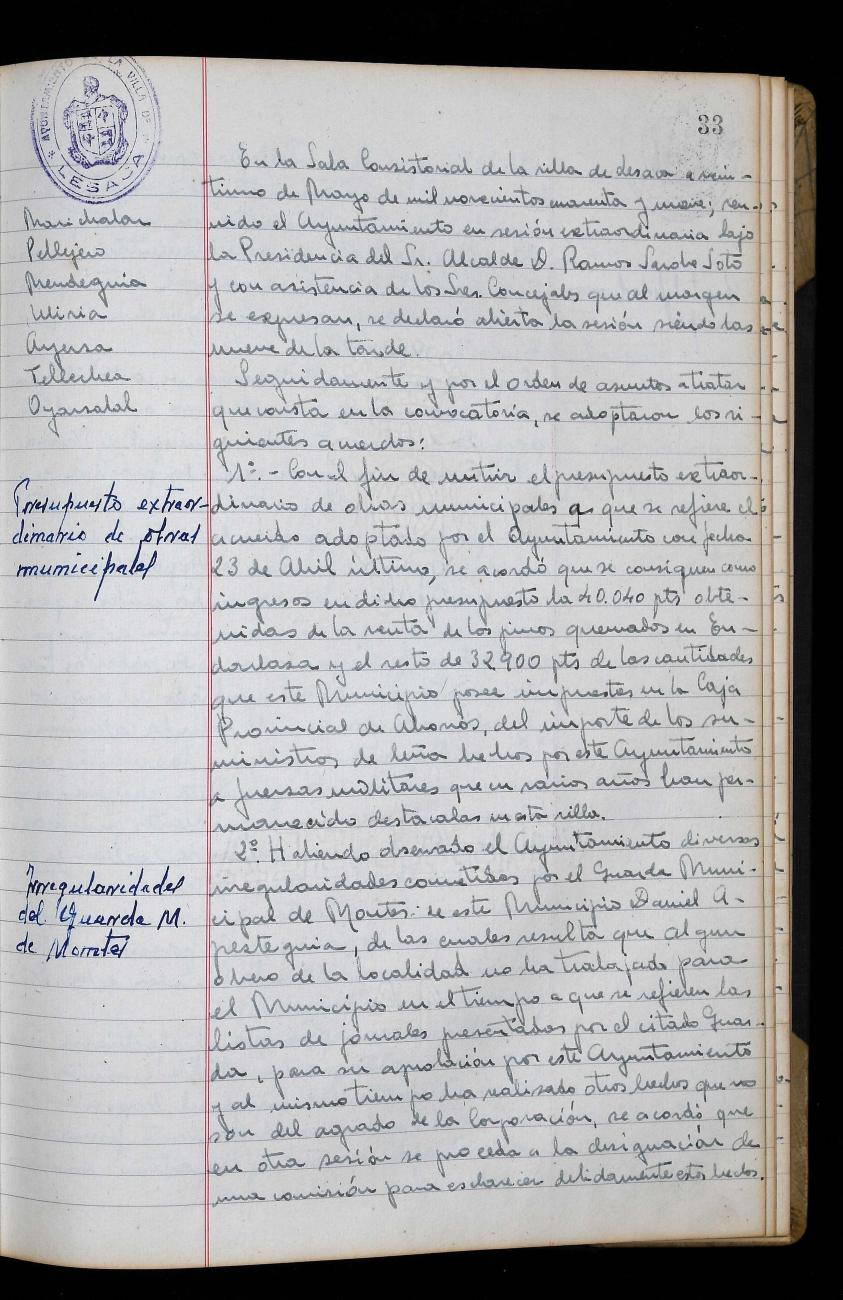 AYUNTAMIENTO DE LA VILLA DE
LESACA
33
Marichalar
Pellejero
Mendeguia
Miria
Ayersa
Tellechea
Oyarzabal
En la Sala Consistorial de la villa de Lesaca a vein-
tiuno de Mayo de mil novecientos cuarenta y nueve; reu-
nido el Ayuntamiento en sesión extraordinaria bajo
la Presidencia del Sr. Alcalde D. Ramos Soto
y con asistencia de los Sres. Concejales que al margen
se expresan, se declaró abierta la sesión siendo las
nueve de la tarde.
Seguidamente y por el orden de asuntos a tratar
que consta en la convocatoria, se adoptaron los si-
guientes acuerdos:
Presupuesto extraor-
dinario de obras
municipales
1º.- Con el fin de nutrir el presupuesto extraor-
dinario de obras municipales a que se refiere el
acuerdo adoptado por el Ayuntamiento con fecha
23 de Abril último, se acordó que se consignen como
ingresos en dicho presupuesto la 40.040 pts obte-
nidas de la venta de los pinos quemados en En-
darlaza y el resto de 32900 pts de las cantidades
que este Municipio posee impuestas en la Caja
Provincial de Ahorros, del importe de los su-
ministros de leña hechos por este Ayuntamiento
a fuerzas militares que en varios años han per-
manecido destacadas en esta villa.
Irregularidades
del Guarda M.
de Montes
2º. Habiendo observado el Ayuntamiento diversas
irregularidades cometidas por el Guarda Muni-
cipal de Montes de este Municipio Daniel A-
pesteguia, de las cuales resulta que algun
obrero de la localidad no ha trabajado para
el Municipio en el tiempo a que se refieren las
listas de jornales presentadas por el citado Guar-
da, para su aprobación por este Ayuntamiento
y al mismo tiempo ha realizado otros hechos que no
son del agrado de la Corporación, se acordó que
en otra sesión se proceda a la designación de
una comisión para esclarecer debidamente estos hechos.